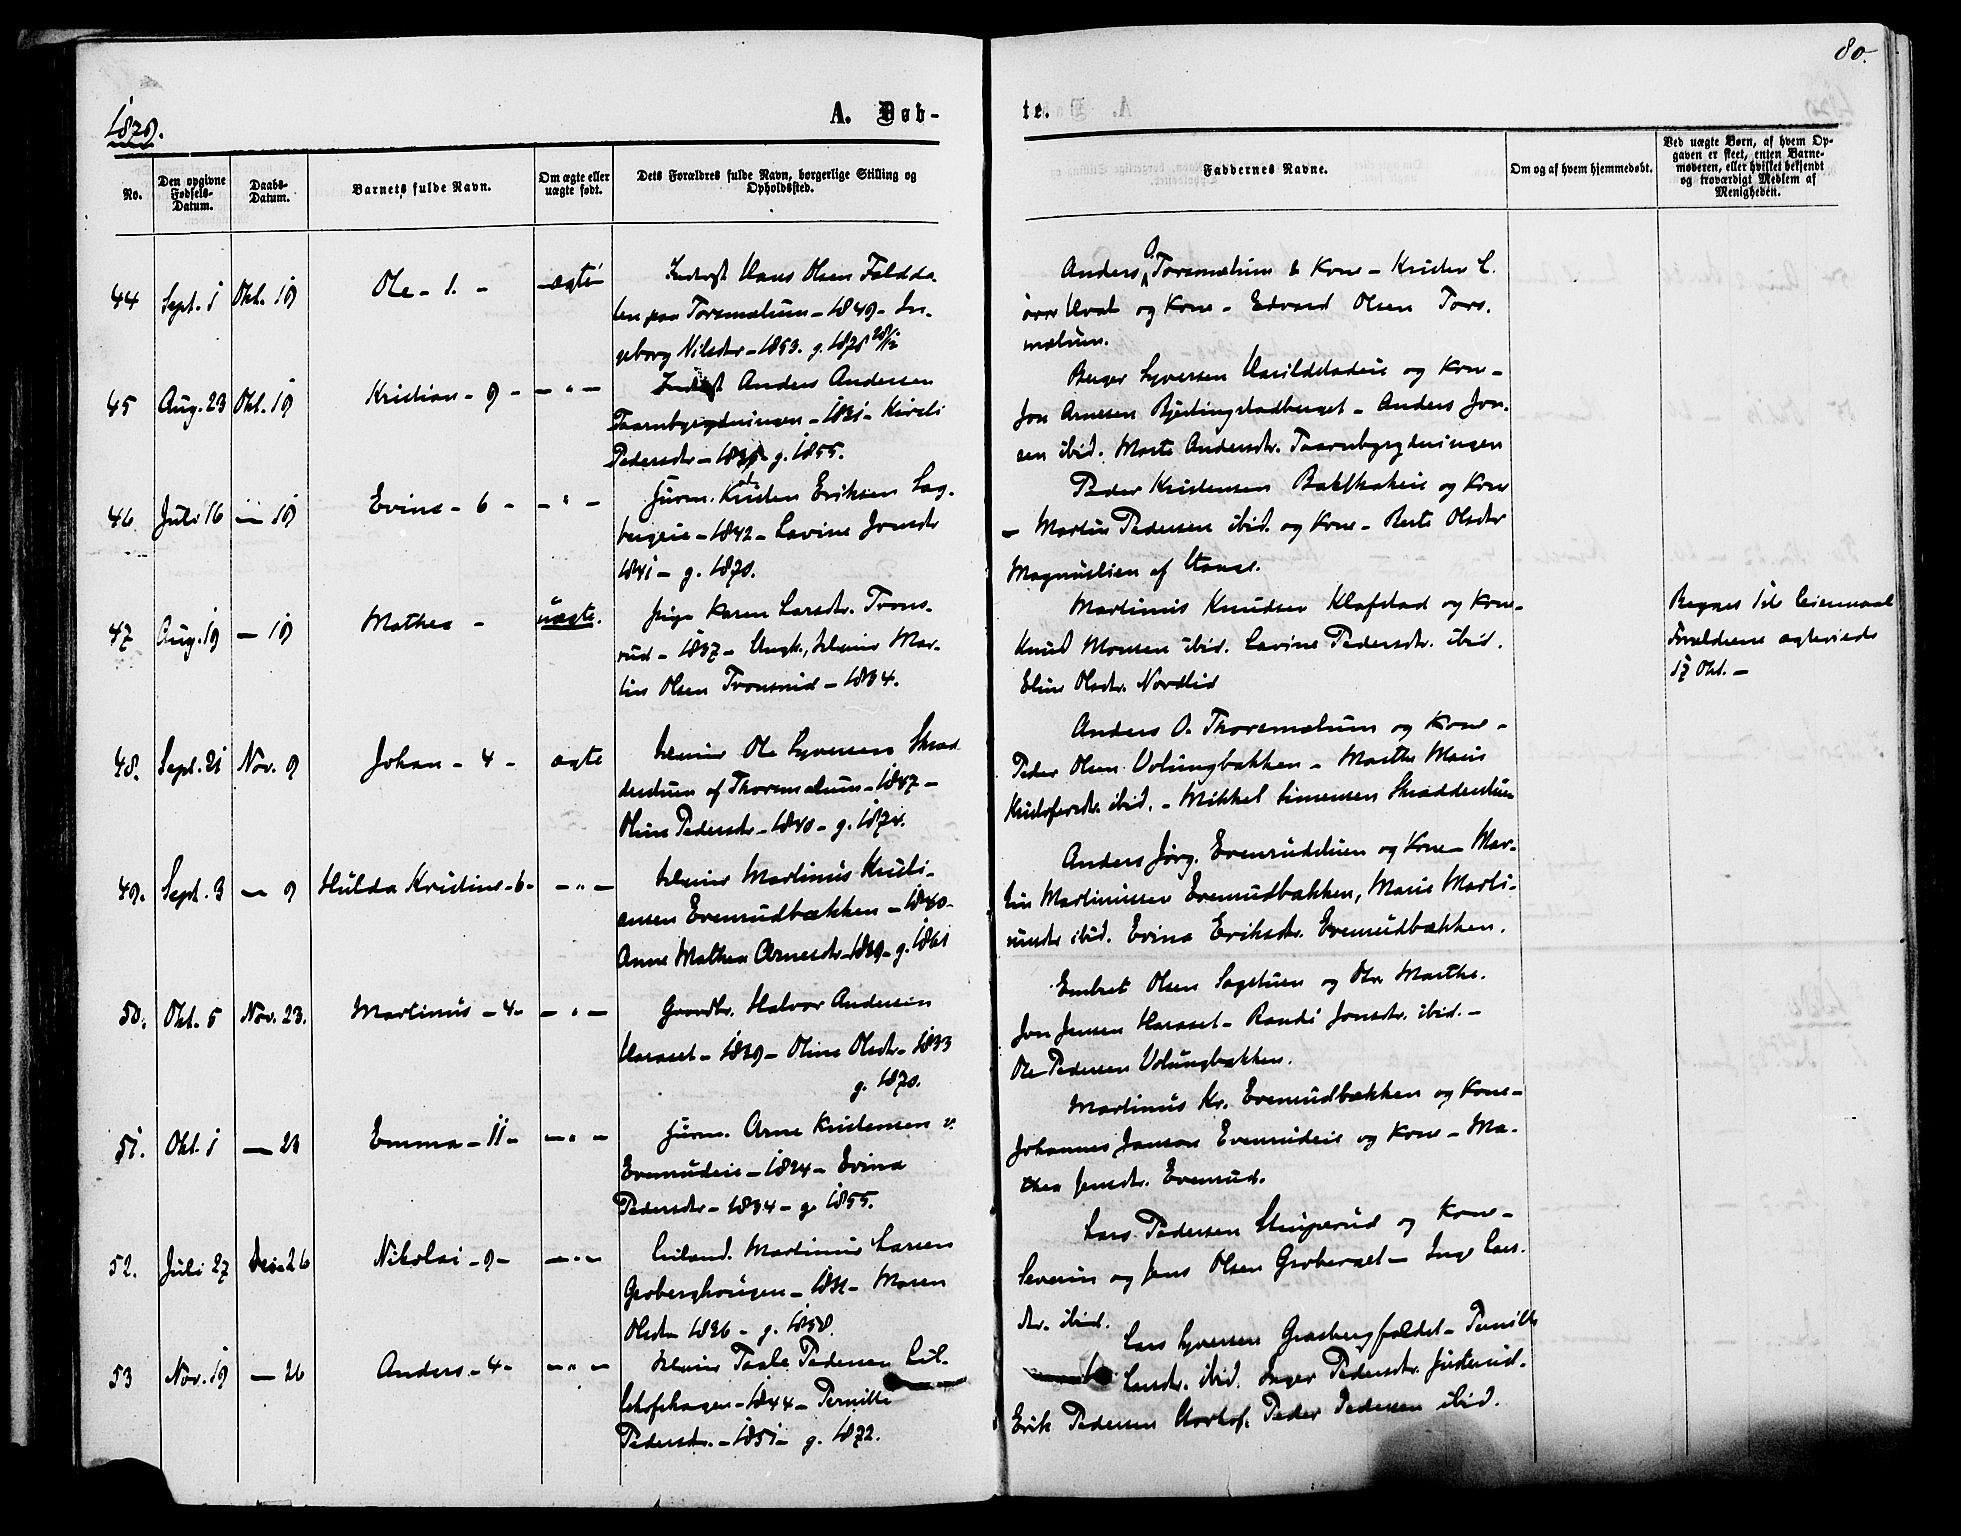 80.
1879.
A. Døb-
te.
No.
Den opgivne Fødsels-Datum.
Daabs-Datum.
Barnets fulde Navn.
Om ægte eller uægte født.
Dets Forældres fulde Navn, borgerlige Stilling og Opholdssted.
Faddernes Navne.
Om og af hvem hjemmedøbt.
Ved uægte Børn, af hvem Op-
gaven er skeet, enten Barne-
moderen, eller hvilket bekjendt
og troværdigt Medlem af
Menigheden.
44 Sept. 1 Okt. 19 Ole - 1. - ægte
Inderst Hans Olsen Faldda-
len paa Torsmælum - 1849 - In-
geborg Nilsdtr - 1853. g. 1878
Anders O. Torsmælum & Kone - Kristen L.
og Kone - Edvard Olsen Tors-
mælum.
45 Aug. 23 Okt. 19 Kristian - 9 - - " -
Inderst Anders Andersen
Taarnbyrydningen - 1831 - Kirsti
Pedersdtr - g. 1855.
Berger Syversen og Kone -
Jon Arnesen Bjertingstadberget - Anders Jon-
sen ibid. Marte Andersdtr. Taarnbyrydningen
46 Juli 16 - 19 Evine - 6 - - " -
Huusm. Kristen Eriksen Sag-
bergeie - 1842 - Lavine Jonsdtr
1841 - g. 1870.
Peder Kristensen Bakkhakeie og Kone
- Martin Pedersen ibid. og Kone - Berte Olsdtr
Magnuslien af
47 Aug. 19 - 19 Mathea - uægte.
Pige Karen Larsdtr. Trons-
rud - 1837 - Ungk., Mar-
tin Olsen Tronsrud - 1834.
Martinus Knudsen Klafstad og Kone -
Knud Monsen ibid. Lavine Pedersdtr. ibid.
Eline Olsdtr. Nordlid
Begges 1ste Leiermaal
Forældrene ægteviede
17 Okt. -
48. Sept. 21 Nov. 9 Johan - 4 - ægte
Ole Syversen Skræd
derstuen af Thorsmælum - 1847 -
Oline Pedersdtr - 1840 - g. 1874.
Anders O. Thorsmælum og Kone -
Peder Olsen Volungbakken - Marthe Marie
Kristofersdtr. ibid. - Mikkel Simensen Skrædderstuen
49. Sept. 3 - 9 Hulda Kristine - 6 - - " -
Martinus Kristi-
ansen Evensrudbækken - 1840 -
Anne Mathea Arnesdtr - 1839 - g. 1861
Anders Jörg. Evensrudstuen og Kone - Mar-
tin Martinussen Evensrudbækken, Marie Marti-
nusdtr ibid. Evina Eriksdtr. Evensrudbækken.
50. Okt. 5 Nov. 23. Martinus - 4 - - " -
Gaardbr. Halvor Andersen
Haraset - 1839 - Oline Olsdtr - 1833
g. 1870.
Embret Olsen Sagstuen og Dtr. Marthe.
Jon Jensen Haraset - Randi Jonsdtr. ibid. -
Ole Pedersen Volungbakken.
51. Okt. 1 - 23 Emma - 11 - - " -
Huusm. Arne Kristensen
Evensrudeie - 1834 - Evina
Pedersdtr - 1834 - g. 1855.
Martinus Kr. Evensrudbækken og Kone -
Johannes Janson Evensrudeie og Kone - Ma-
thea Jensdtr. Evensrud.
52. Juli 27 Dec. 26 Nikolai - 9 - - " -
Leiland. Martinus Larsen
Groberghougen - Maren
Olsdtr 1836 - g. 1858.
Lars Pedersen Struperud og Kone -
Severin og Jens Olsen - Inge Lars-
dtr. ibid.
53 Nov. 19 - 26 Anders - 4 - - " -
Taale Pedersen Lil-
lehofshagen - 1844 - Pernille
Pedersdtr. - 1851 - g. 1872.
Lars Syversen Grasbergfaldet - Pernille
Larsdtr. ibid. Inger Pedersdtr. Justerud.
Erik Pedersen Peder Pedersen ibid.